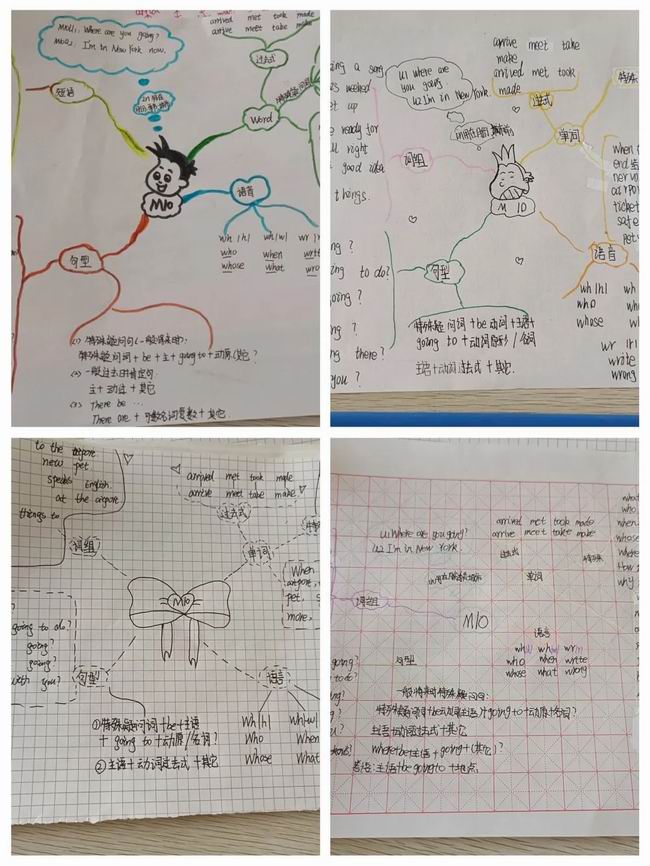 arrived met took made
arrive meet take make
MIOU1: Where are you going?
MIOU2: I'm in New York now.
过去式
短语
Word
M10
语音
wh |h| wh |w| wr |r
who when write
whose what wro
句型
(1) 特殊疑问句(一般将来时):
特殊疑问词+be+主+going to+动原(其它?
(2) 一般过去时肯定句:
主+动过+其它
(3) There be …
There are + 可数名词复数+其它.
arrive meet take
make
arrived met took
made
过去式
ing a song
weekend
et up
e ready for
ll right
good idea
things.
U1 Where are
you going
U2 I'm in New York.
词组
单词
M 10
when
end
nervo
airpor
ticket
safe
pet
语音
wh |h| wh
who w
whose wh
wr |r|
write
wrong
ng?
ing to do?
going?
ng?
ng there?
you?
句型
特殊疑问词+be动词+主语+
going to+动词原形/名词
主语+动词过去式+其它.
to the airpore
new pet
speaks English.
at the airpore
things to
arrived met took made
arrive meet take make.
过去式
词组
单词
When
airport,
pet, s
more,
M10
?
going to do?
going?
going?
with you?
句型
语音
①特殊疑问词+be+主语
+ going to +动原/名词?
②主语+动词过去式+其它
Wh|h| Wh|w|
Who When
Whose What
U1 Where are you going?
U2 I'm in New York.
arrived met took made
arrive meet take make
过去式
特殊疑
单词
词组
M10
语音
wh|h| wh|w| wr|r|
who when write
whose what wrong
句型
一般将来时特殊疑问句:
特殊疑问词+be动词+主语+going to+动原+名词?
主语+动词过去式+其它
where+be+主语+going+(其它)?
答语:主语+be going to +地点
what
who
when
whose
where
How
why
going?
to do?